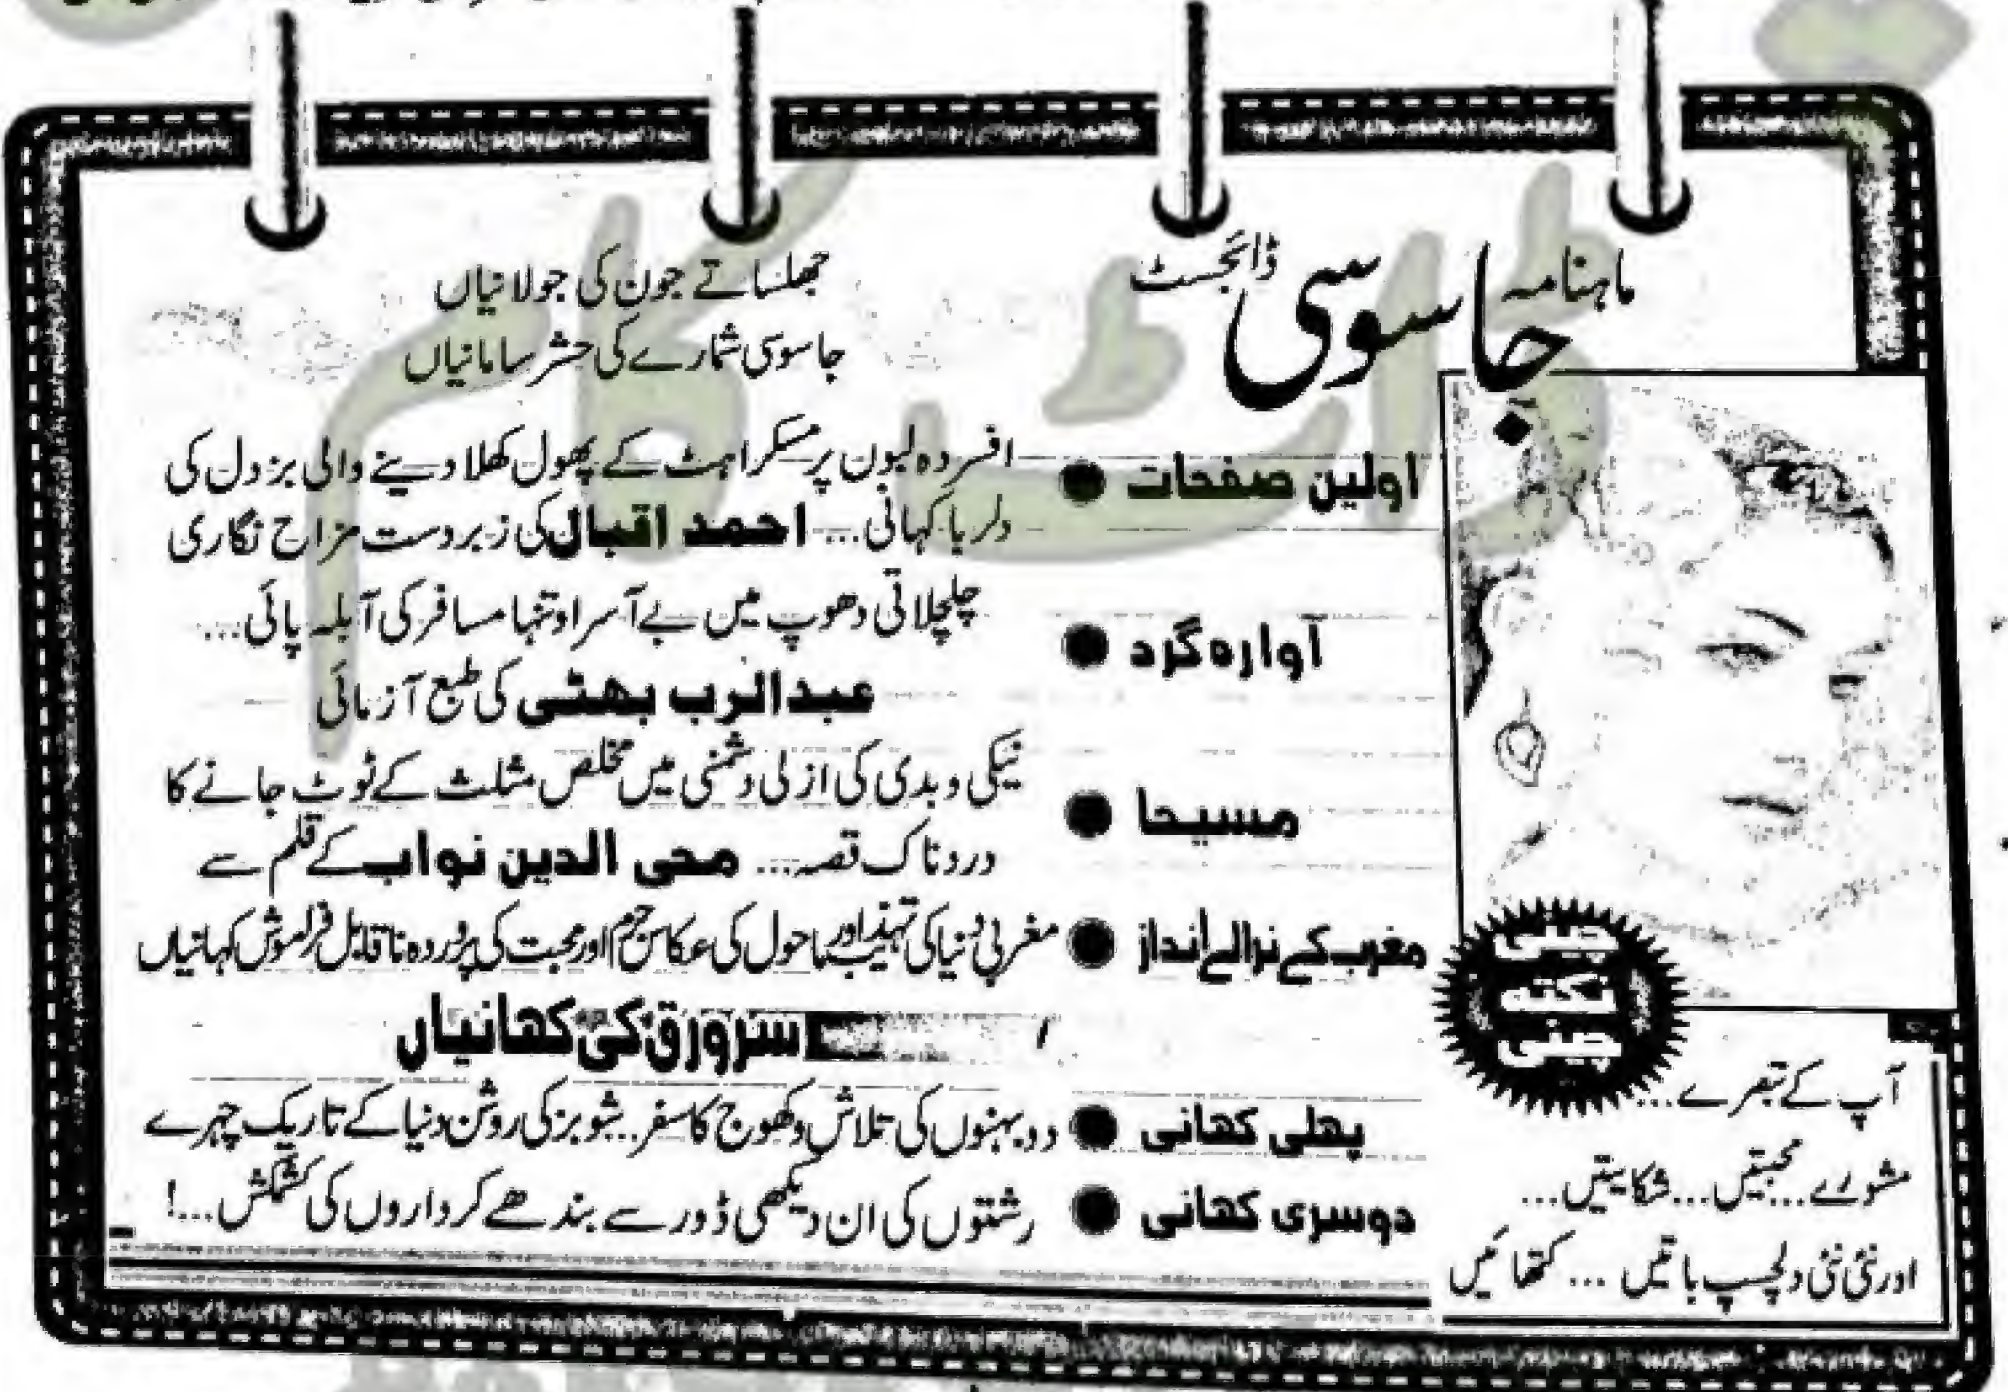 ماہنامہ جاسوسی ڈائجسٹ
جھلساتے جون کی جولانیاں
جاسوسی شمارے کی حشر سامانیاں
اولین صفحات ● افسردہ لبوں پر مسکراہٹ کے پھول کھلا دینے والی بزدل کی
دلربا کہانی... احمد اقبال کی زبردست مزاح نگاری
آوارہ گرد ● چلچلاتی دھوپ میں بے آسرا و تنہا مسافر کی آبلہ پائی...
عبدالرب بھٹی کی طبع آزمائی
مسیحا ● نیکی و بدی کی ازلی دشمنی میں مخلص مثلث کے ٹوٹ جانے کا
دردناک قصہ... محی الدین نواب کے قلم سے
مغرب کے نرالے انداز ● مغربی دنیا کی تہذیب اور ماحول کی عکاس جرم اور محبت کی ناقابل فراموش کہانیاں
سرورق کی کہانیاں
پہلی کہانی ● دو بہنوں کی تلاش و کھوج کا سفر... شوبز کی روشن دنیا کے تاریک چہرے
دوسری کہانی ● رشتوں کی ان دیکھی ڈور سے بندھے کرداروں کی کشمکش...!
چینی
نکتہ
چینی
آپ کے تبصرے...
مشورے... محبتیں... شکایتیں...
اور نئی نئی دلچسپ باتیں... کتھائیں
ڈاٹ کام